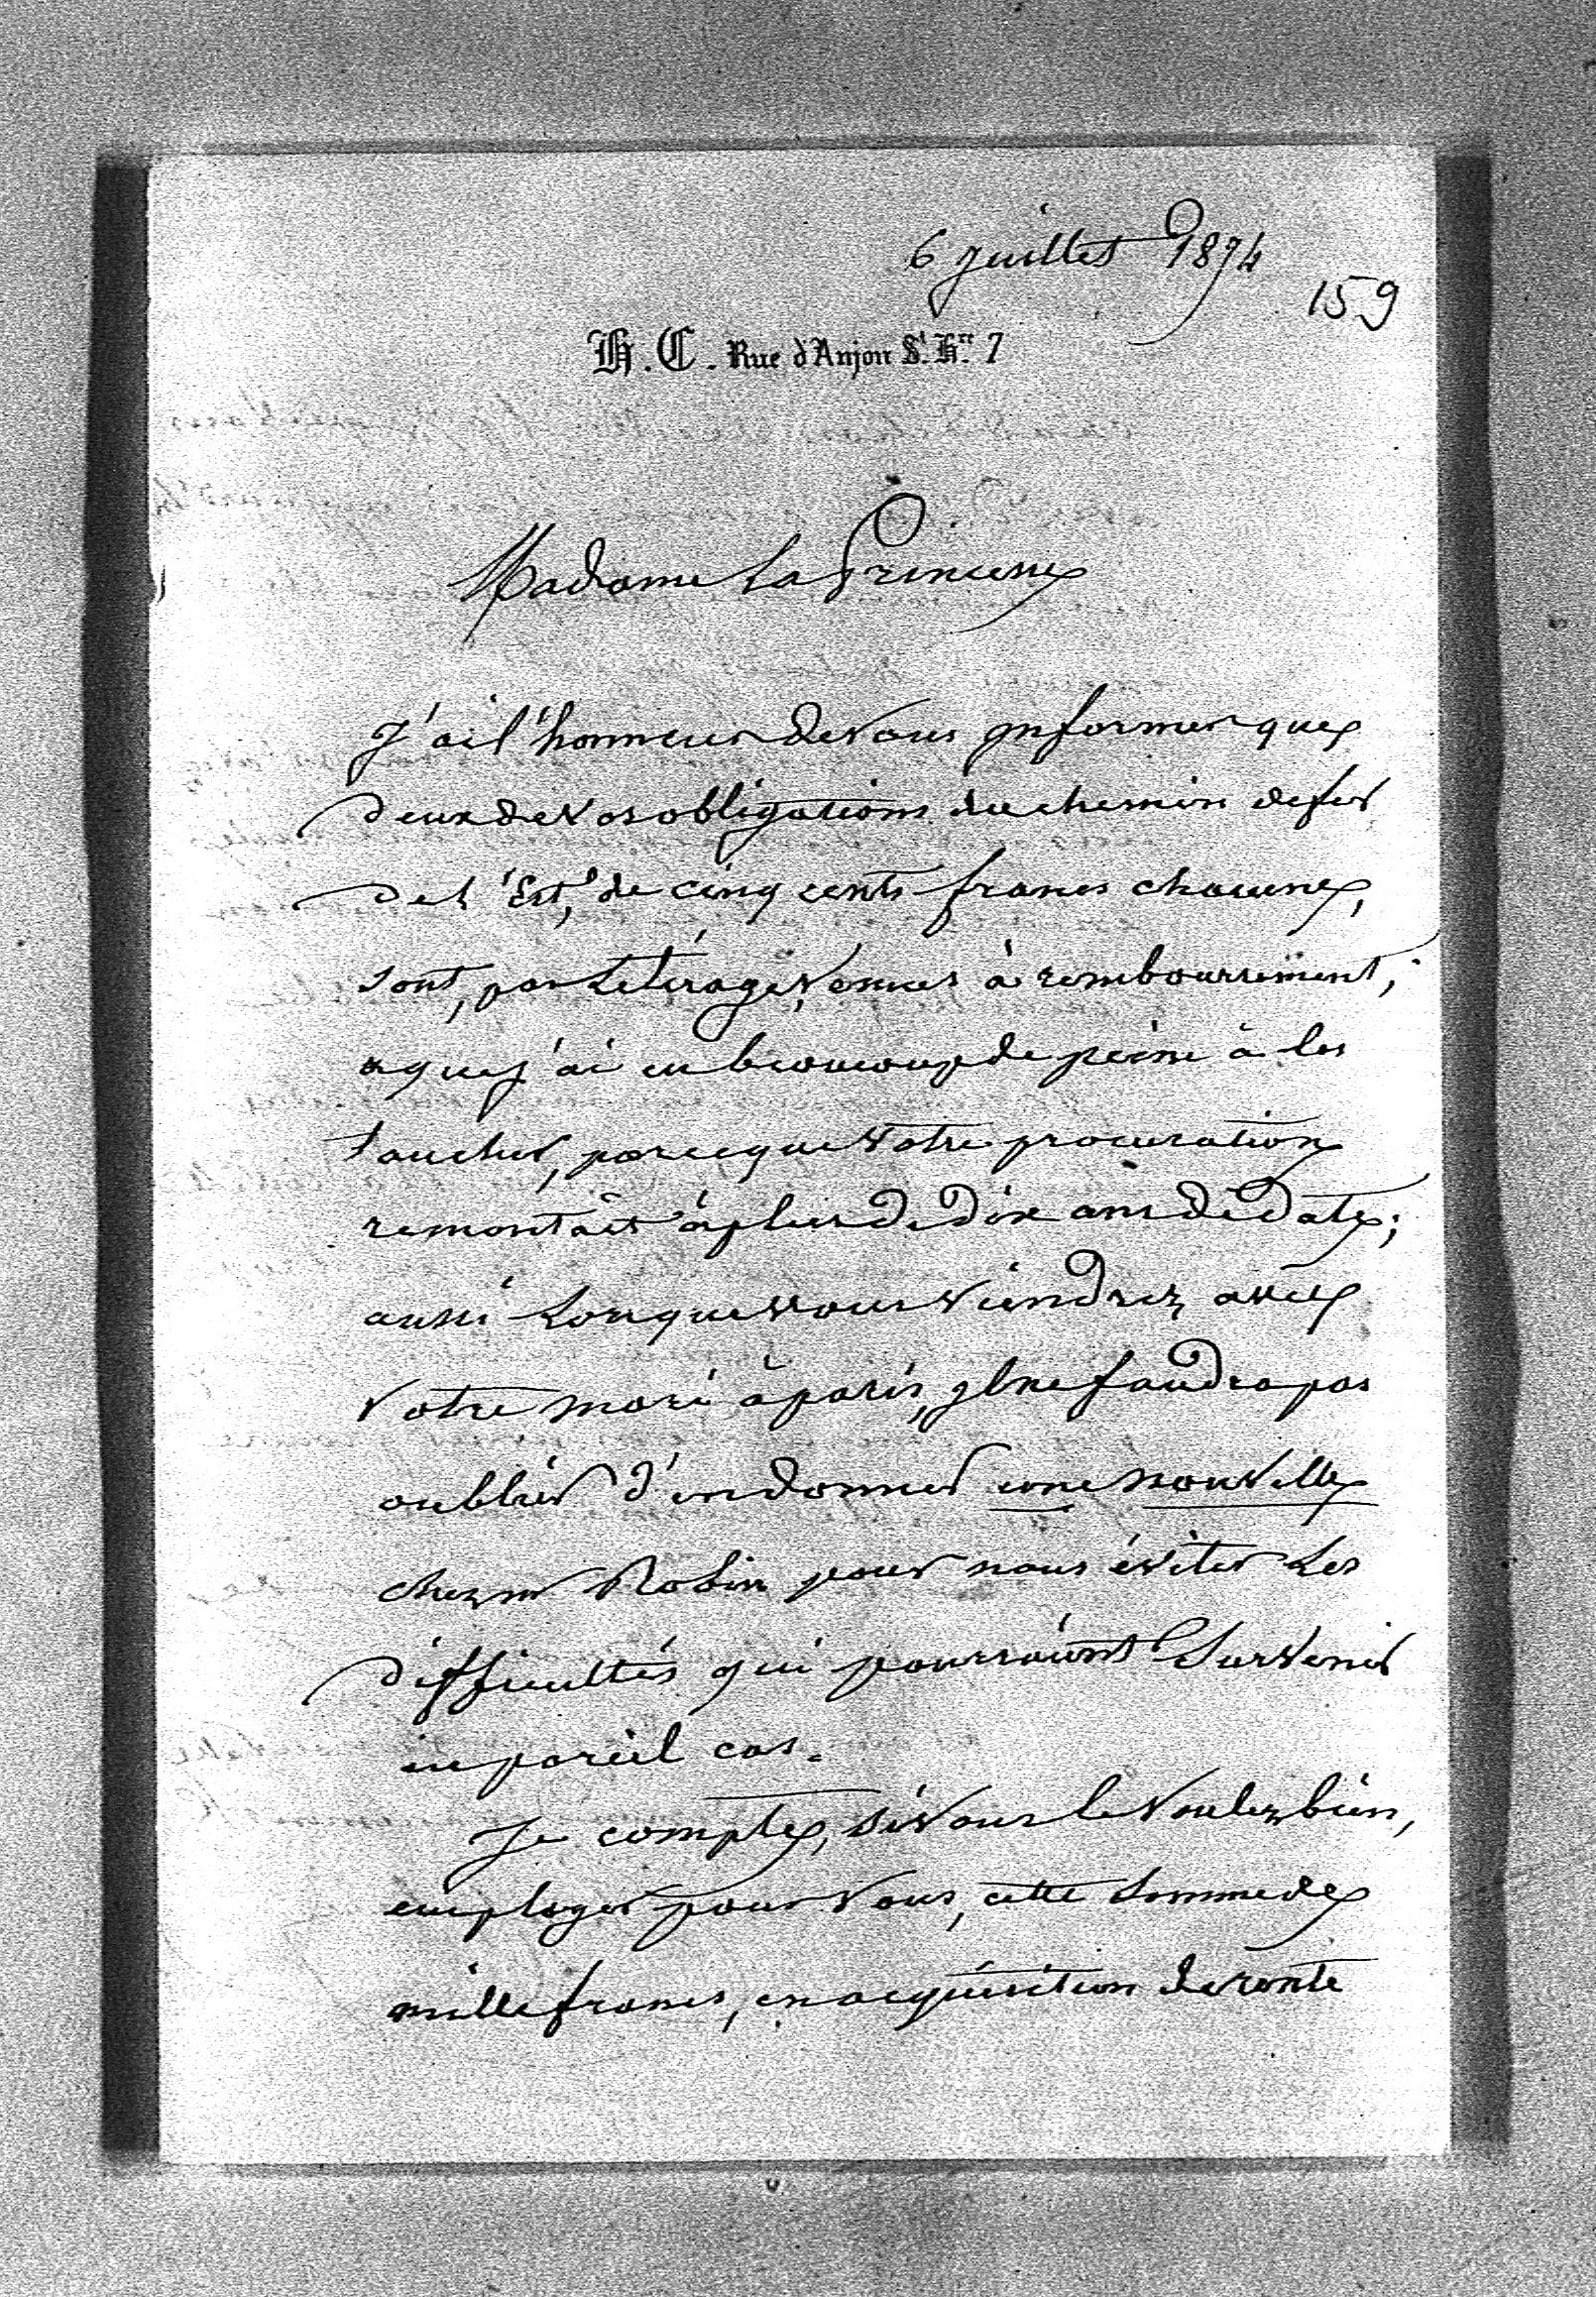 6 juillet 1874
159
H. C. Rue d'Anjou St. Hré. 7
Madame La Princesse
J'ai l'honneur de vous informer que
deux de vos obligations du chemin de fer
de l'Est, de cinq cents francs chacune,
sont, par le tirage, venues à remboursement,
& que j'ai eu beaucoup de peine à les
toucher, parceque votre procuration
remontait à plus de dix ans de date;
aussi lorsque vous viendrez avec
votre mari à paris, il ne faudra pas
oublier d'en donner une nouvelle
chez mr Robin pour nous éviter les
difficultés qui pourraient survenir
en pareil cas.
Je compte, si vous le voulez bien,
employer pour vous, cette somme de
mille francs, en acquisition de rente